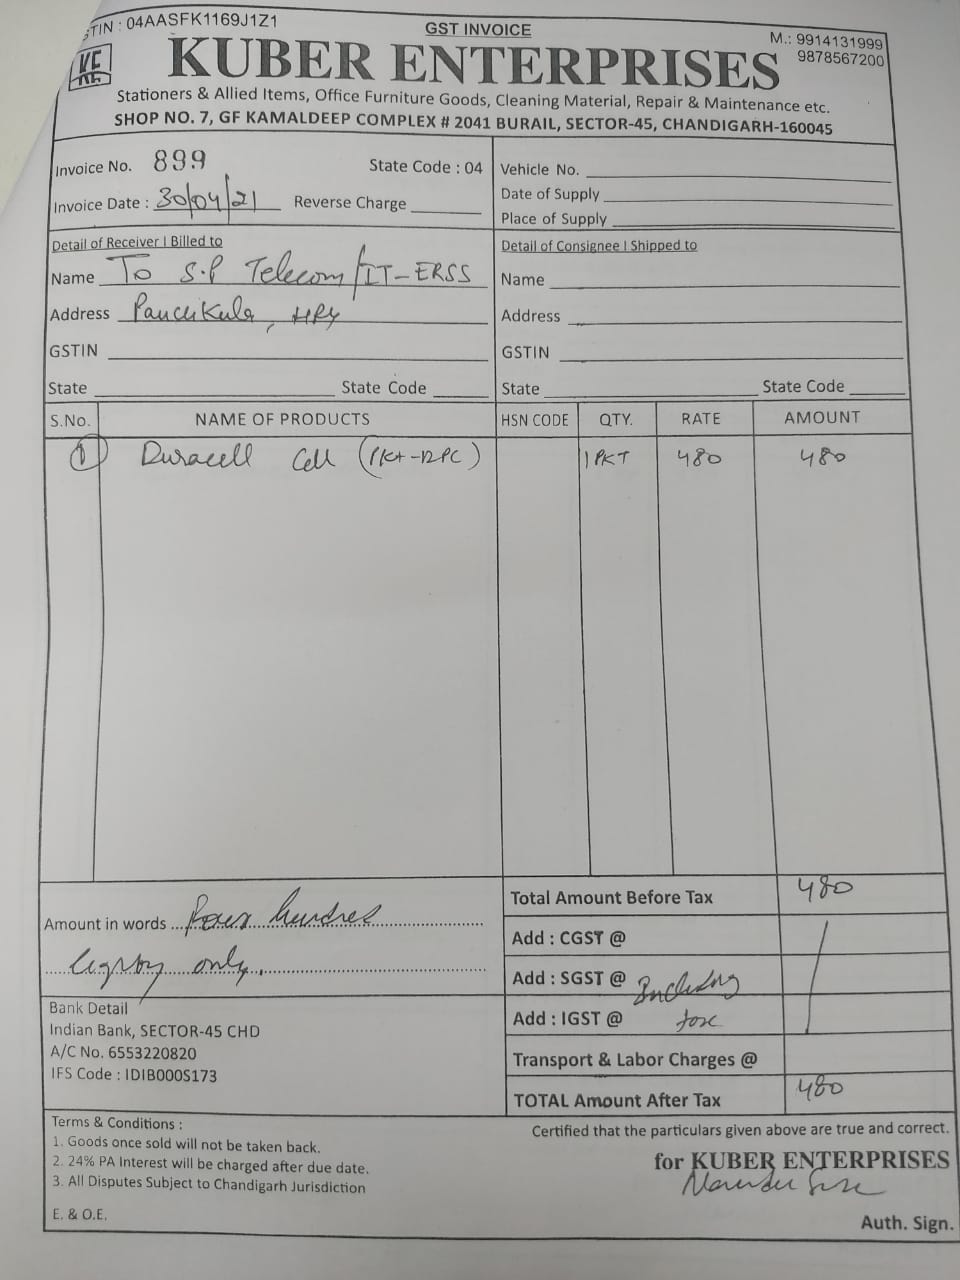 GSTIN : 04AASFK1169J1Z1
GST INVOICE
M.: 9914131999
9878567200
KE
KUBER ENTERPRISES
Stationers & Allied Items, Office Furniture Goods, Cleaning Material, Repair & Maintenance etc.
SHOP NO. 7, GF KAMALDEEP COMPLEX # 2041 BURAIL, SECTOR-45, CHANDIGARH-160045
Invoice No. 899 State Code : 04
Invoice Date : 30/04/21 Reverse Charge
Vehicle No.
Date of Supply
Place of Supply
Detail of Receiver | Billed to
Name To S.P Telecom/IT-ERSS
Address Panchkula, HRY
GSTIN
State State Code
Detail of Consignee | Shipped to
Name
Address
GSTIN
State State Code
S.No. NAME OF PRODUCTS HSN CODE QTY. RATE AMOUNT
1 Duracell Cell (1Pkt-12PC) 1 PKT 480 480
Amount in words Four hundred
eighty only.
Total Amount Before Tax 480
Add : CGST @
Add : SGST @ Including
Add : IGST @ tax
Transport & Labor Charges @
TOTAL Amount After Tax 480
Bank Detail
Indian Bank, SECTOR-45 CHD
A/C No. 6553220820
IFS Code : IDIB000S173
Terms & Conditions :
1. Goods once sold will not be taken back.
2. 24% PA Interest will be charged after due date.
3. All Disputes Subject to Chandigarh Jurisdiction
E. & O.E.
Certified that the particulars given above are true and correct.
for KUBER ENTERPRISES
Auth. Sign.